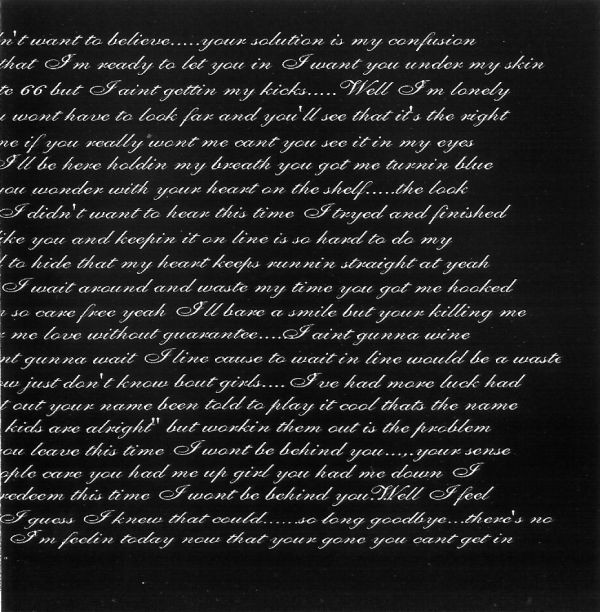 n't want to believe.....your solution is my confusion
that I'm ready to let you in I want you under my skin
te 66 but I aint gettin my kicks.....Well I'm lonely
u wont have to look far and you'll see that it's the right
me if you really wont me cant you see it in my eyes
I'll be here holdin my breath you got me turnin blue
you wonder with your heart on the shelf.....the look
I didn't want to hear this time I tryed and finished
like you and keepin it on line is so hard to do my
d to hide that my heart keeps runnin straight at yeah
I wait around and waste my time you got me hooked
n so care free yeah I'll bare a smile but your killing me
r me love without guarantee....I aint gunna wine
nt gunna wait I line cause to wait in line would be a waste
ow just don't know bout girls.... I've had more luck had
t out your name been told to play it cool thats the name
kids are alright" but workin them out is the problem
ou leave this time I wont be behind you.....your sense
ople care you had me up girl you had me down I
redeem this time I wont be behind you.Well I feel
I guess I knew that could......so long goodbye...there's no
I'm feelin today now that your gone you cant get in